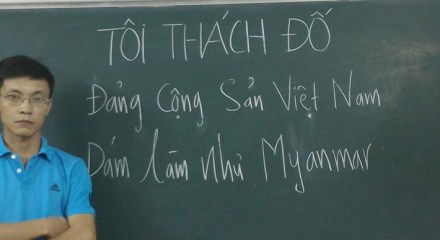 TÔI THÁCH ĐỐ
Đảng Cộng Sản Việt Nam
Dám làm như Myanmar